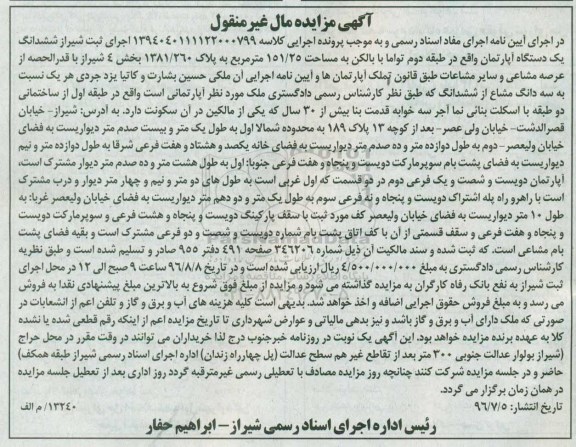 آگهی مزایده مال غیر منقول
در اجرای آیین نامه اجرای مفاد اسناد رسمی و به موجب پرونده اجرایی کلاسه ۱۳۹۴۰۴۰۱۱۱۱۲۲۰۰۰۷۹۹ اجرای ثبت شیراز ششدانگ
یک دستگاه آپارتمان واقع در طبقه دوم تواما با بالکن به مساحت ۱۵۱/۲۵ مترمربع به پلاک ۱۳۸۱/۲۶۰ بخش ۴ شیراز با قدرالحصه از
عرصه مشاعی و سایر مشاعات طبق قانون تملک آپارتمان ها و آیین نامه اجرایی آن ملکی حسین بشارت و کاتیا یزد جردی هر یک نسبت
به سه دانگ مشاع از ششدانگ که طبق نظر کارشناس رسمی دادگستری ملک مورد نظر آپارتمانی است واقع در طبقه اول از ساختمانی
دو طبقه با اسکلت بنائی نما آجر سه خوابه قدمت بنا بیش از ۳۰ سال که یکی از مالکین در آن سکونت دارد. به آدرس: شیراز- خیابان
قصرالدشت- خیابان ولی عصر- بعد از کوچه ۱۳ پلاک ۱۸۹ به محدوده شمالا اول به طول یک متر و بیست صدم متر دیواریست به فضای
خیابان ولیعصر- دوم به طول دوازده متر و ده صدم متر دیواریست به فضای خانه یکصد و هشتاد و هفت فرعی شرقا به طول دوازده متر و نیم
دیواریست به فضای پشت بام سوپرمارکت دویست و پنجاه و هفت فرعی جنوبا: اول به طول هشت متر و ده صدم متر دیوار مشترک است،
آپارتمان دویست و شصت و یک فرعی دوم در دو قسمت که اول غربی است به طول های دو متر و نیم و چهار متر دیوار و درب مشترک
است با راهرو راه پله اشتراک دویست و پنجاه و نه فرعی سوم به طول یک متر و دو دهم متر دیواریست به فضای خیابان ولیعصر غربا: به
طول ۱۰ متر دیواریست به فضای خیابان ولیعصر کف مورد ثبت با سقف پارکینگ دویست و پنجاه و هشت فرعی و سوپرمارکت دویست
و پنجاه و هفت فرعی و سقف قسمتی از آن با کف اتاق پشت بام شماره دویست و شصت و دو فرعی مشترک است و بقیه فضای پشت
بام مشاعی است. که ثبت شده و سند مالکیت آن ذیل شماره ۳۴۶۲۰۶ صفحه ۴۹۱ دفتر ۹۵۵ صادر و تسلیم شده است و طبق نظریه
کارشناس رسمی دادگستری به مبلغ ۴/۵۰۰/۰۰۰/۰۰۰ ریال ارزیابی شده است و در تاریخ ۹۶/۸/۸ ساعت ۹ صبح الی ۱۲ در محل اجرای
ثبت شیراز به نفع بانک رفاه کارگران به مزایده گذاشته می شود و مزایده از مبلغ فوق شروع به بالاترین مبلغ پیشنهادی نقدا به فروش
می رسد و به مبلغ فروش حقوق اجرایی اضافه و اخذ خواهد شد. بدیهی است کلیه هزینه های آب و برق و گاز و تلفن اعم از انشعابات در
صورتی که ملک دارای آب و برق و گاز باشد و نیز بدهی مالیاتی و عوارض شهرداری تا تاریخ مزایده اعم از اینکه رقم قطعی شده یا نشده
کلا به عهده برنده مزایده خواهد بود. این آگهی یک نوبت در روزنامه خبرجنوب درج لذا خریداران می توانند در وقت مقرر در محل حراج
(شیراز بولوار عدالت جنوبی ۳۰۰ متر بعد از تقاطع غیر هم سطح عدالت (پل چهارراه زندان) اداره اجرای اسناد رسمی شیراز طبقه همکف)
حاضر و در جلسه مزایده شرکت کنند چنانچه روز مزایده مصادف با تعطیلی رسمی غیرمترقبه گردد روز اداری بعد از تعطیل جلسه مزایده
در همان زمان برگزار می گردد.
تاریخ انتشار: ۹۶/۷/۵
۱۳۲۴۰/ م الف
رئیس اداره اجرای اسناد رسمی شیراز - ابراهیم حفار